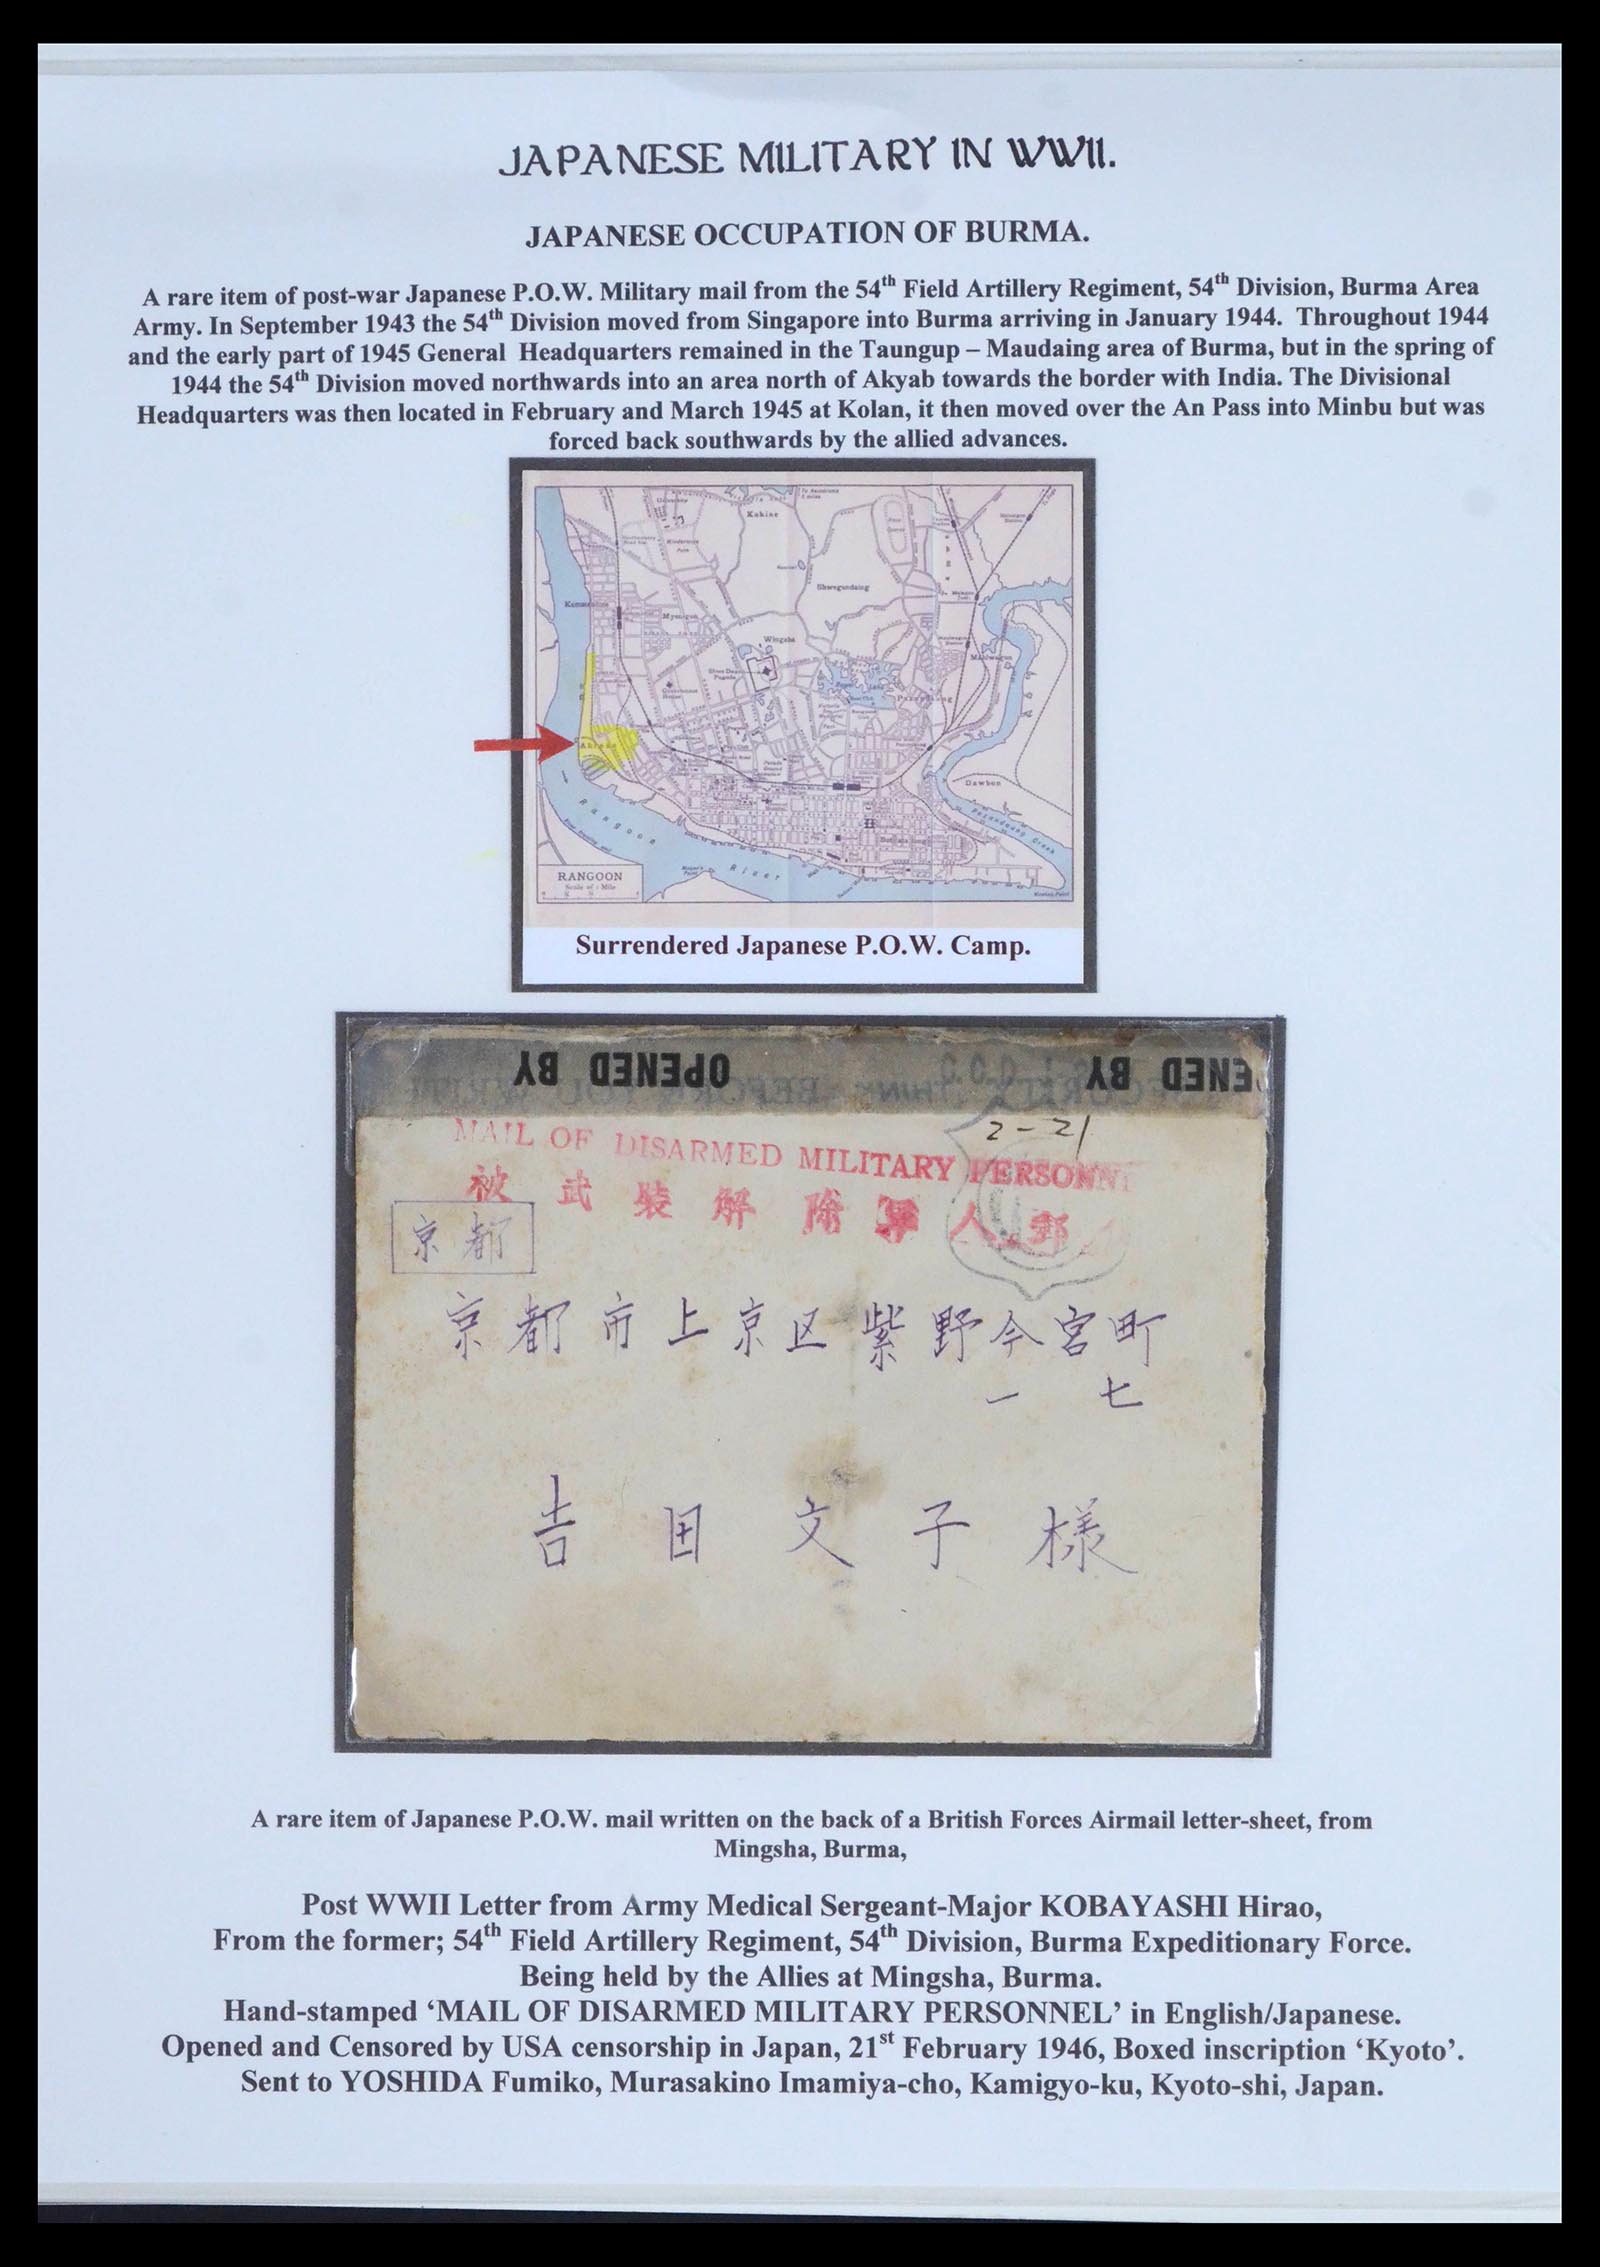 JAPANESE MILITARY IN WWII.
JAPANESE OCCUPATION OF BURMA.
A rare item of post-war Japanese P.O.W. Military mail from the 54th Field Artillery Regiment, 54th Division, Burma Area
Army. In September 1943 the 54th Division moved from Singapore into Burma arriving in January 1944. Throughout 1944
and the early part of 1945 General Headquarters remained in the Taungup – Maudaing area of Burma, but in the spring of
1944 the 54th Division moved northwards into an area north of Akyab towards the border with India. The Divisional
Headquarters was then located in February and March 1945 at Kolan, it then moved over the An Pass into Minbu but was
forced back southwards by the allied advances.
Kokine
Shwegondaing
Myenigon
Wingaba
Dawbon
Rangoon River
RANGOON
Surrendered Japanese P.O.W. Camp.
OPENED BY
ENED BY
2-21
MAIL OF DISARMED MILITARY PERSONN
被武装解除軍人郵
京都
京都市上京区紫野今宮町
一七
吉田文子様
A rare item of Japanese P.O.W. mail written on the back of a British Forces Airmail letter-sheet, from
Mingsha, Burma,
Post WWII Letter from Army Medical Sergeant-Major KOBAYASHI Hirao,
From the former; 54th Field Artillery Regiment, 54th Division, Burma Expeditionary Force.
Being held by the Allies at Mingsha, Burma.
Hand-stamped ‘MAIL OF DISARMED MILITARY PERSONNEL’ in English/Japanese.
Opened and Censored by USA censorship in Japan, 21st February 1946, Boxed inscription ‘Kyoto’.
Sent to YOSHIDA Fumiko, Murasakino Imamiya-cho, Kamigyo-ku, Kyoto-shi, Japan.